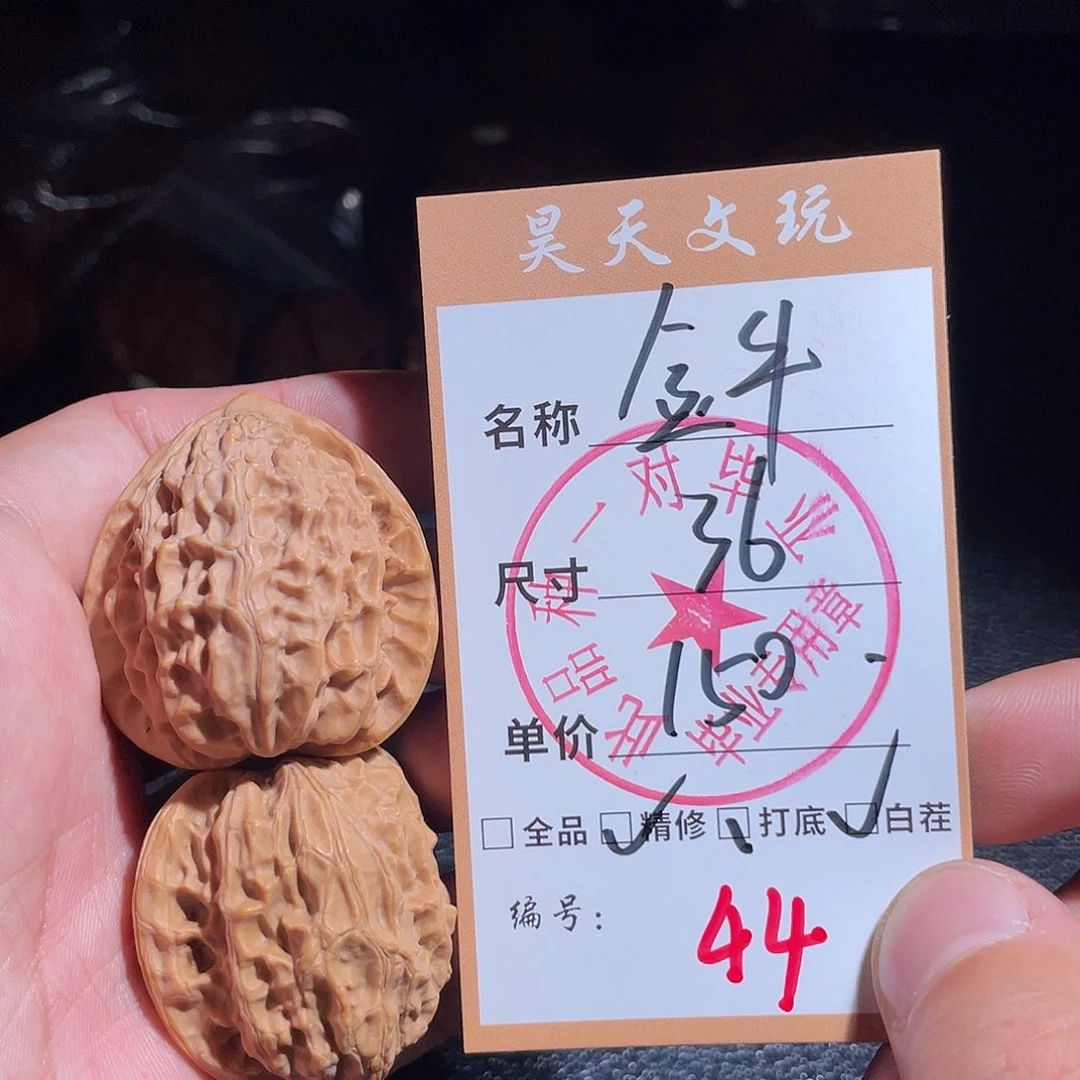 昊天文玩
名称 金牛
尺寸 36
单价 150.
□全品 ☑精修 □打底 ☑白茬
编号: 44
名品种一对毕业
毕业专用章